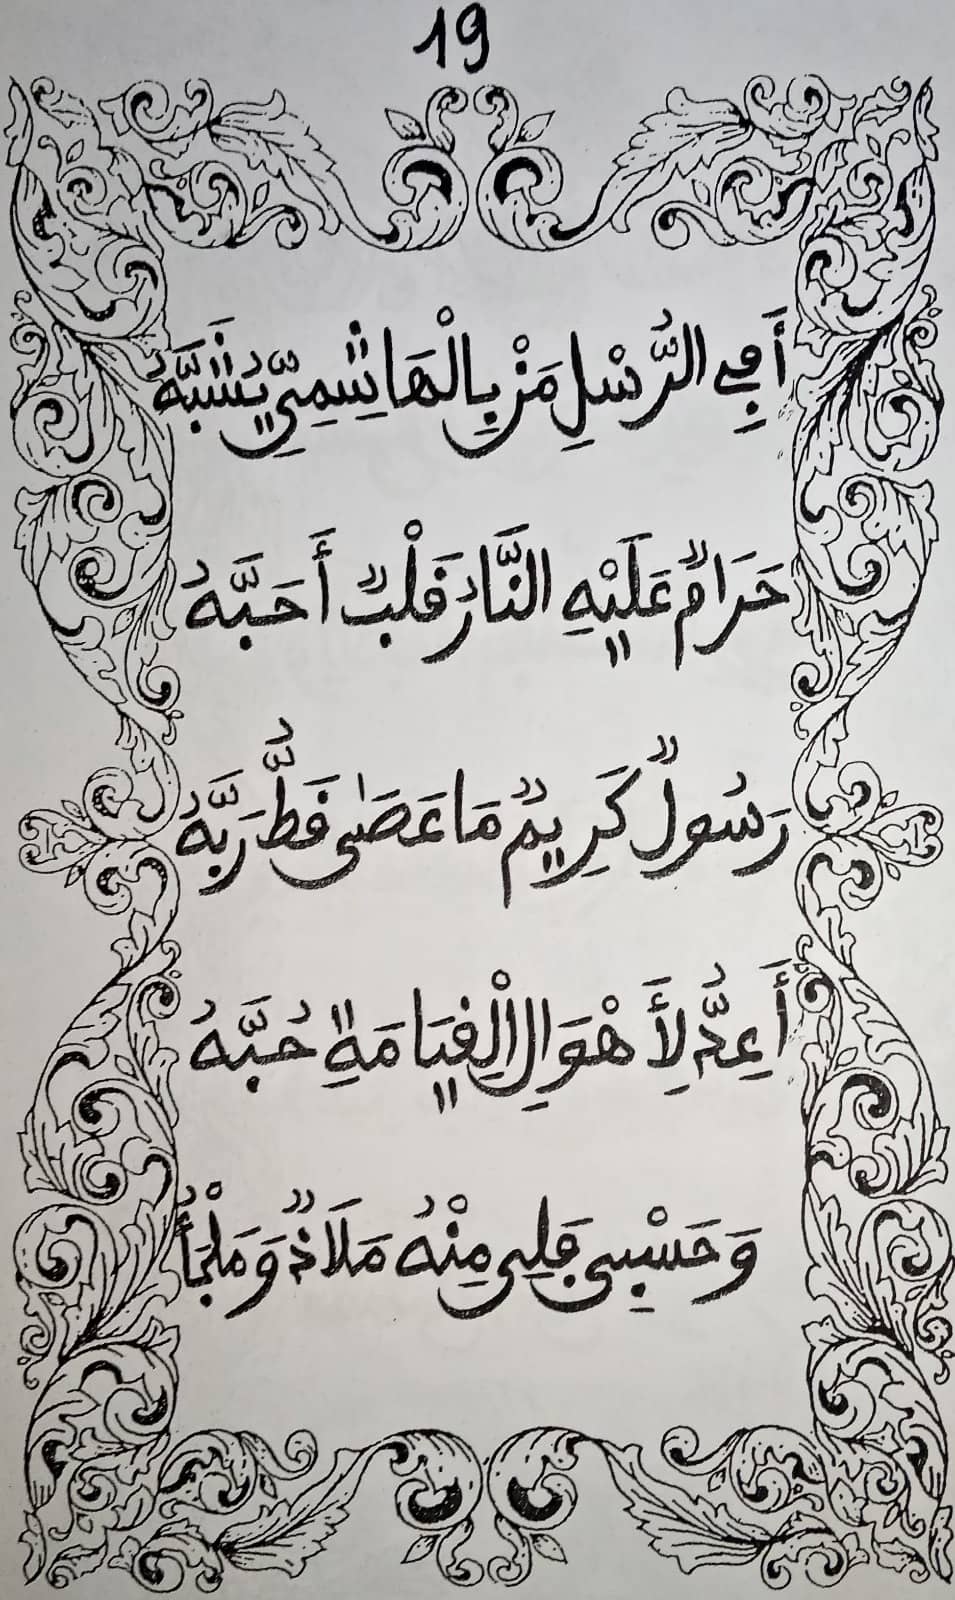 19
أَفِي الرُّسْلِ مَنْ بِالْهَاشِمِيِّ يُشَبَّهُ
حَرَامٌ عَلَيْهِ النَّارُ قَلْبٌ أَحَبَّهُ
رَسُولٌ كَرِيمٌ مَا عَصَى قَطُّ رَبَّهُ
أَعِدُّ لِأَهْوَالِ الْقِيَامَةِ حُبَّهُ
وَحَسْبِي فَلِي مِنْهُ مَلَاذٌ وَمَلْجَأُ